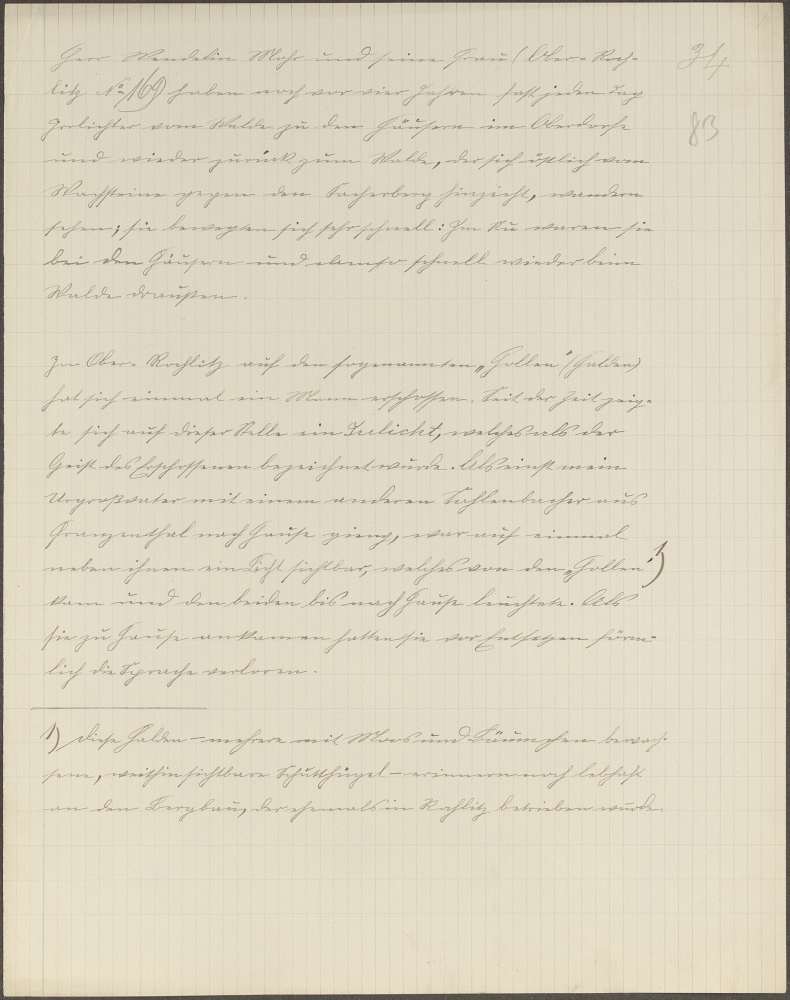 Herr Wendelin Mohr und seine Frau (Ober-Roch-
litz No 169) haben noch vor vier Jahren fast jeden Tag
Irrlichter vom Walde zu den Häusern im Oberdorfe
und wieder zurück zum Walde, der sich östlich vom
Wachsteine gegen den Sacherberg hinzieht, wandern
sehen; sie bewegten sich sehr schnell: Im Nu waren sie
bei den Häusern und ebenso schnell wieder beim
Walde draußen.
In Ober-Rochlitz auf den sogenannten „Hollen" (Halden)
hat sich einmal ein Mann erschossen. Seit der Zeit zeig-
te sich auf dieser Stelle ein Irrlicht, welches als der
Geist des Erschossenen bezeichnet wurde. Als einst mein
Urgroßvater mit einem anderen Sahlenbacher aus
Franzenthal nach Hause gieng, war auf einmal
neben ihnen ein Licht sichtbar, welches von den „Hollen" 1)
kam und den beiden bis nach Hause leuchtete. Als
sie zu Hause ankamen hatten sie vor Entsetzen förm-
lich die Sprache verloren.
1) Diese Halden – mehrere mit Moos und Bäumchen bewach-
sene, weithin sichtbare Schutthügel – erinnern noch lebhaft
an den Bergbau, der ehemals in Rochlitz betrieben wurde.
83